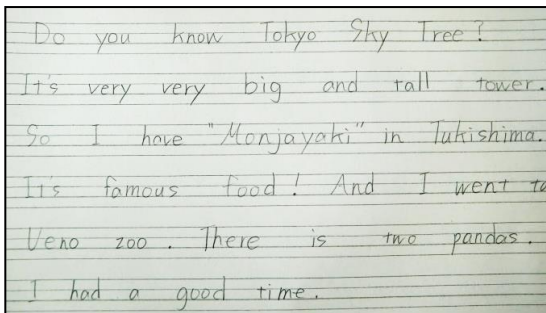 Do you know Tokyo Sky Tree?
It's very very big and tall tower.
So I have "Monjayaki" in Tukishima.
It's famous food! And I went to
Ueno zoo. There is two pandas.
I had a good time.